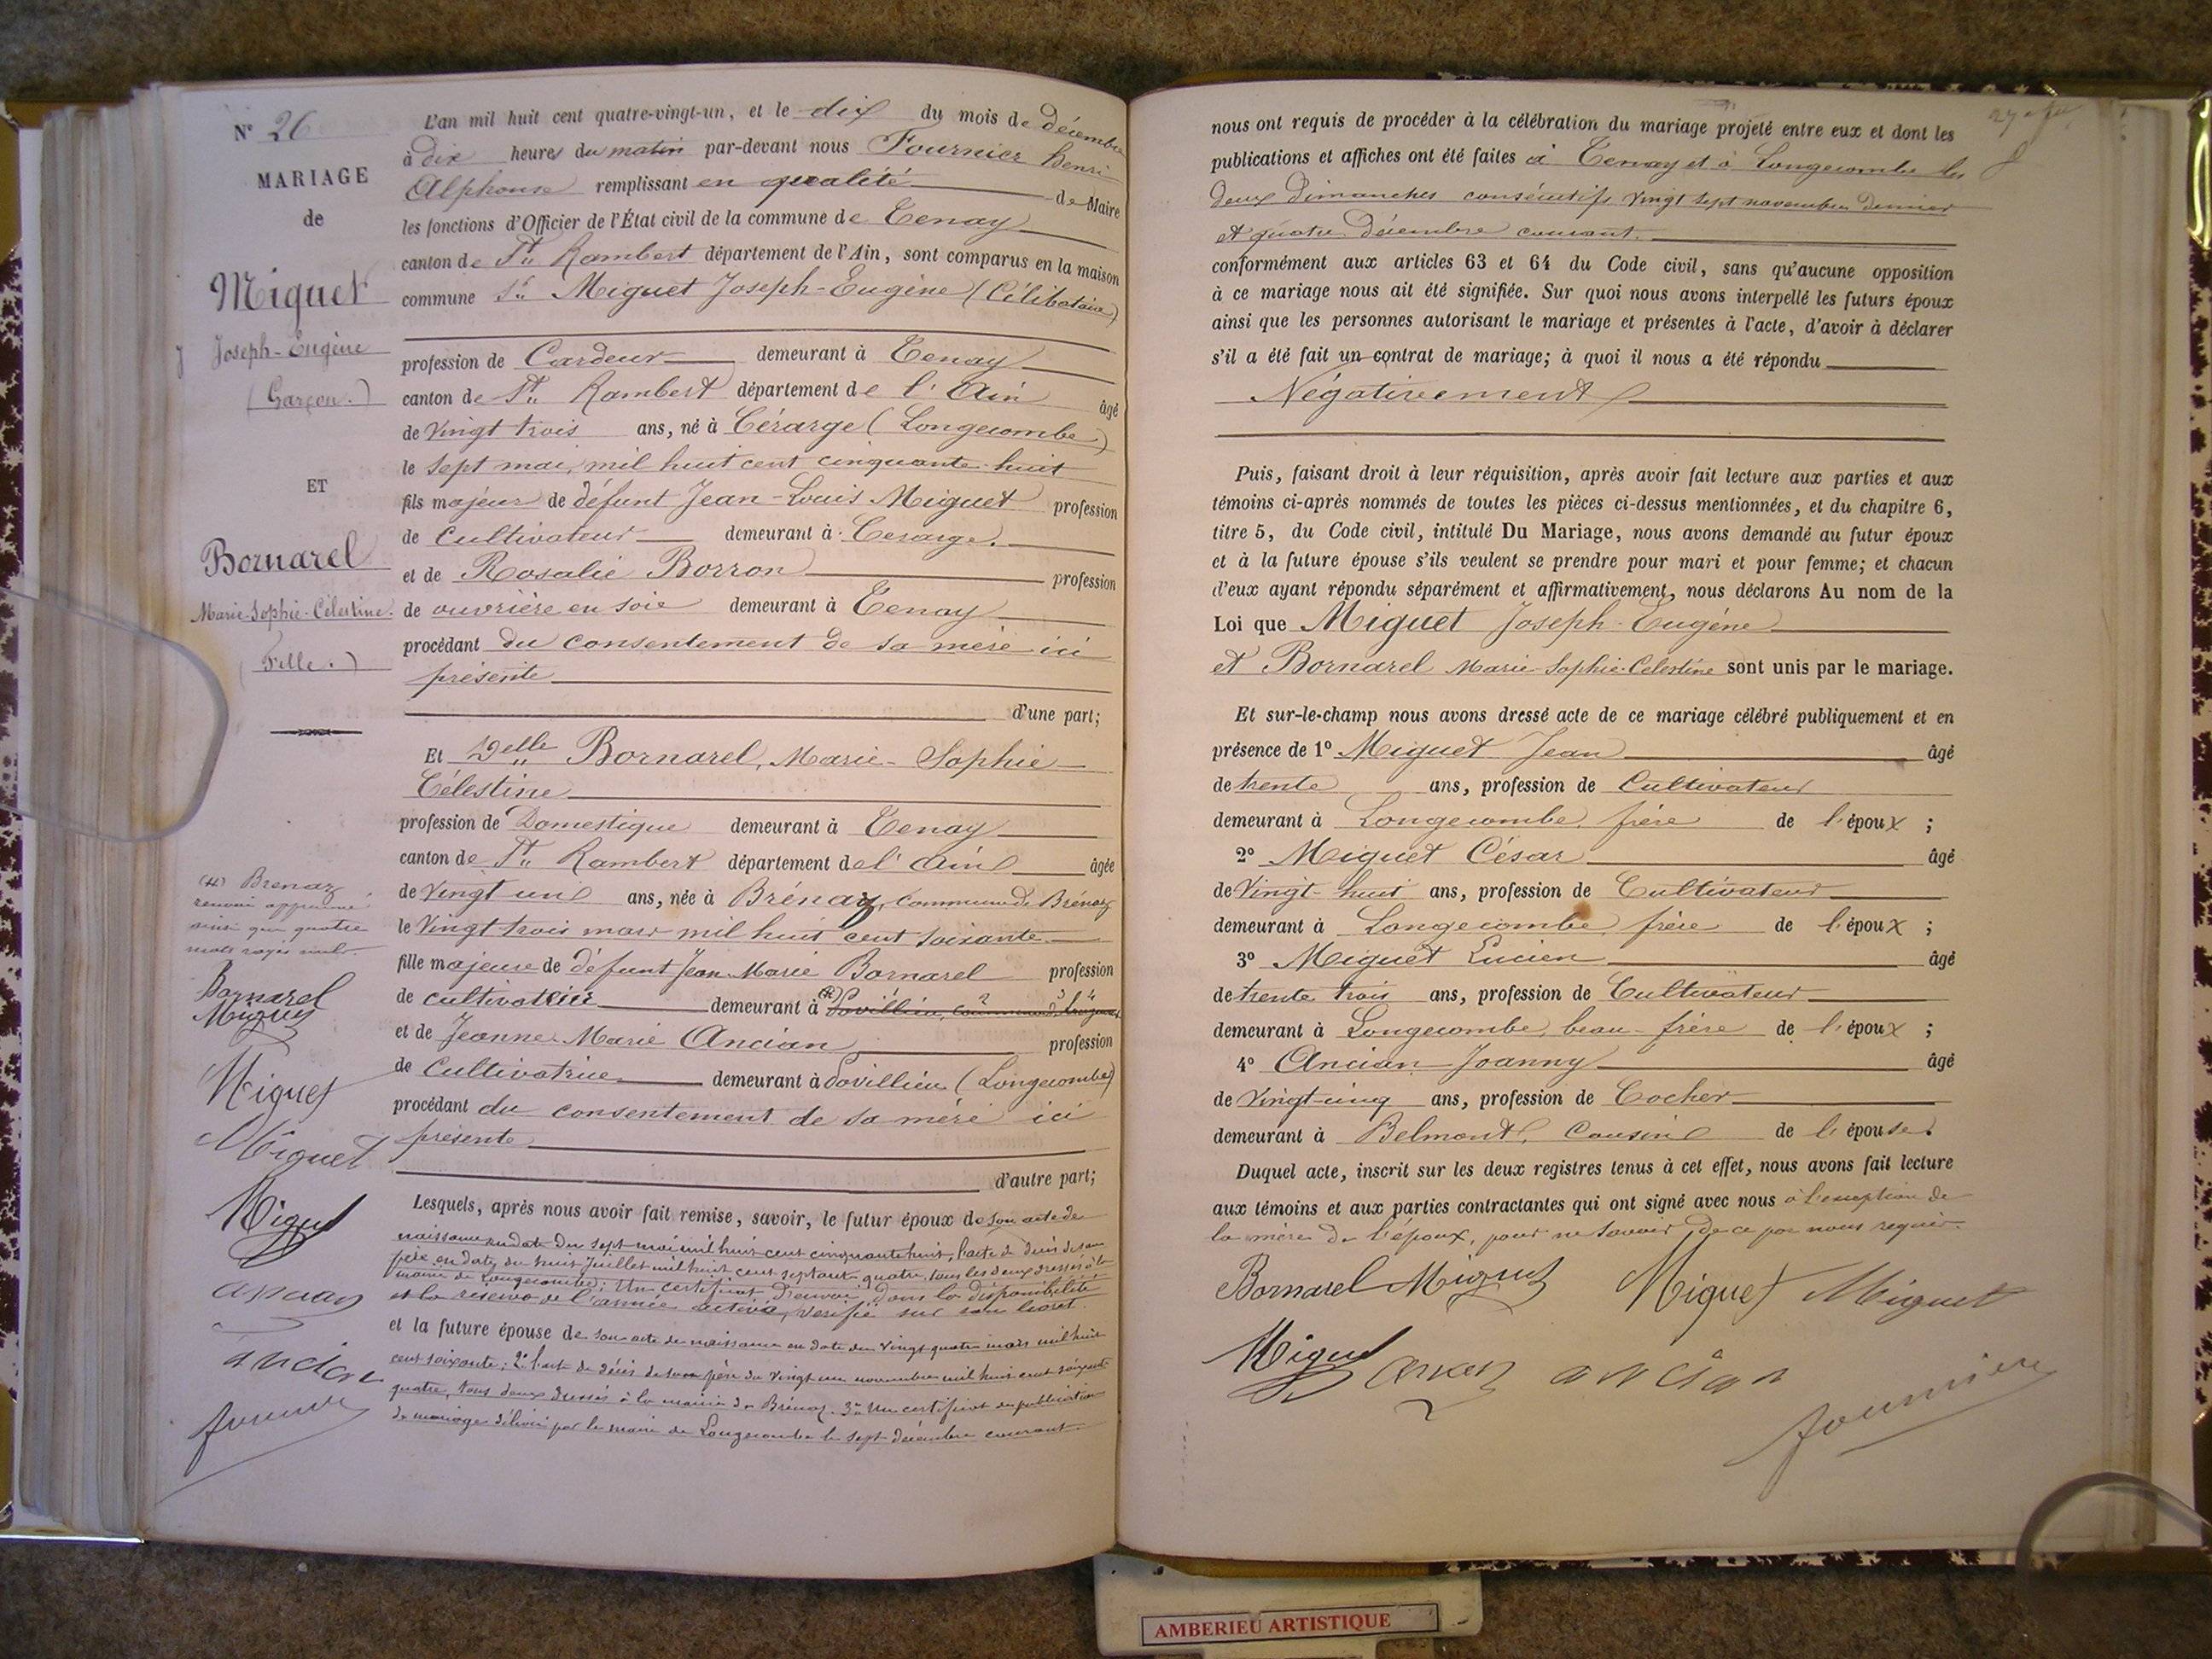 N° 26
MARIAGE
de
Miguet
Joseph-Eugène
(Garçon.)
ET
Bornarel
Marie-Sophie-Célestine.
(Fille.)
(x) Brenaz
renvoi approuvé
ainsi que quatre
mots rayés nuls.
Bornarel
Miguet
Miguet
Miguet
Miguet
ancian
ancian
Fournier
L'an mil huit cent quatre-vingt-un, et le dix du mois de décembre
à dix heures du matin par-devant nous Fournier Henri
Alphonse remplissant en qualité de Maire
les fonctions d'Officier de l'État civil de la commune de Tenay
canton de St Rambert département de l'Ain, sont comparus en la maison
commune Sr Miguet Joseph-Eugène (Célibataire)
profession de Cardeur demeurant à Tenay
canton de St Rambert département de l'Ain âgé
de Vingt trois ans, né à Cérarge (Longecombe)
le sept mai, mil huit cent cinquante huit
fils majeur de défunt Jean-Louis Miguet profession
de Cultivateur demeurant à Cerarge.
et de Rosalie Borron profession
de ouvrière en soie demeurant à Tenay
procédant du consentement de sa mère ici
présente
d'une part;
Et Delle Bornarel, Marie-Sophie-
Célestine
profession de Domestique demeurant à Tenay
canton de St Rambert département de l'Ain âgée
de Vingt un ans, née à Brénaz, commune de Brénaz
le Vingt trois mars mil huit cent soixante
fille majeure de défunt Jean Marie Bornarel profession
de cultivateur demeurant à (x)
et de Jeanne Marie Ancian profession
de Cultivatrice demeurant à Dovillieu (Longecombe)
procédant du consentement de sa mère ici
présente
d'autre part;
Lesquels, après nous avoir fait remise, savoir, le futur époux de son acte de
naissance en date du sept mai mil huit cent cinquante huit, l'acte de décès de son
père en date du huit Juillet mil huit cent septante quatre, tous les deux dressés à la
mairie de Longecombe; Un certificat d'envoi dans la disponibilité
et la réserve de l'armée active, vérifié sur son livret.
et la future épouse de son acte de naissance en date du vingt quatre mars mil huit
cent soixante; 2° l'acte de décès de son père du vingt un novembre mil huit cent soixante
quatre, tous deux dressés à la mairie de Brénaz. 3° Un certificat de publication
de mariage délivré par le maire de Longecombe le sept décembre courant.
nous ont requis de procéder à la célébration du mariage projeté entre eux et dont les
publications et affiches ont été faites à Tenay et à Longecombe les
deux Dimanches consécutifs vingt sept novembre dernier
et quatre Décembre courant.
conformément aux articles 63 et 64 du Code civil, sans qu'aucune opposition
à ce mariage nous ait été signifiée. Sur quoi nous avons interpellé les futurs époux
ainsi que les personnes autorisant le mariage et présentes à l'acte, d'avoir à déclarer
s'il a été fait un contrat de mariage; à quoi il nous a été répondu
Négativement
Puis, faisant droit à leur réquisition, après avoir fait lecture aux parties et aux
témoins ci-après nommés de toutes les pièces ci-dessus mentionnées, et du chapitre 6,
titre 5, du Code civil, intitulé Du Mariage, nous avons demandé au futur époux
et à la future épouse s'ils veulent se prendre pour mari et pour femme; et chacun
d'eux ayant répondu séparément et affirmativement, nous déclarons Au nom de la
Loi que Miguet Joseph-Eugène
et Bornarel Marie-Sophie-Célestine sont unis par le mariage.
Et sur-le-champ nous avons dressé acte de ce mariage célébré publiquement et en
présence de 1° Miguet Jean âgé
de trente ans, profession de Cultivateur
demeurant à Longecombe, frère de l'époux ;
2° Miguet César âgé
de Vingt-huit ans, profession de Cultivateur
demeurant à Longecombe, frère de l'époux ;
3° Miguet Lucien âgé
de trente trois ans, profession de Cultivateur
demeurant à Longecombe, beau-frère de l'époux ;
4° Ancian Joanny âgé
de Vingt-cinq ans, profession de Cocher
demeurant à Belmont, Cousin de l'épouse.
Duquel acte, inscrit sur les deux registres tenus à cet effet, nous avons fait lecture
aux témoins et aux parties contractantes qui ont signé avec nous à l'exception de
la mère de l'époux, pour ne savoir, de ce par nous requise.
Bornarel Miguet Miguet Miguet
Miguet ancian ancian
Fournier
AMBERIEU ARTISTIQUE